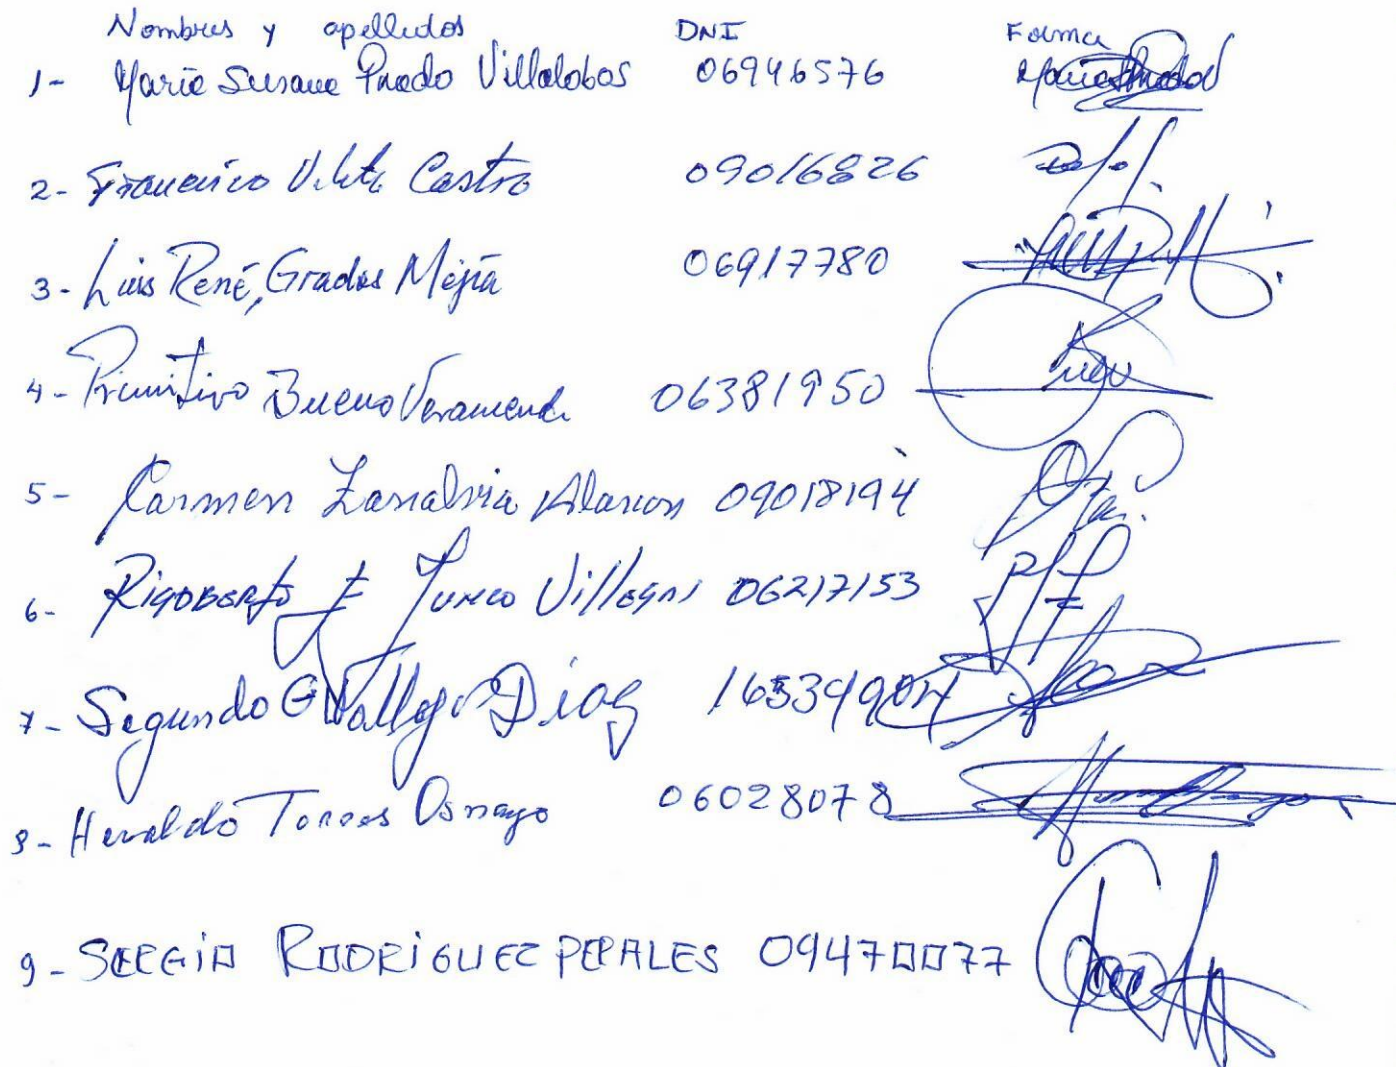 Nombres y apellidos DNI Forma
1- María Susana Prado Villalobos 06946576 María Prado V
2- Francisco Castro 09016826
3- Luis René, Grados Mejía 06917780
4- Primitivo Bueno Veramendi 06381950
5- Carmen Zanabria Alarcon 09018194
6- RIGOBERTO E Junco Villegas 06217153
7- Segundo G Vallejos Díaz 16534904
8- Heraldo Torres Osnayo 06028078
9- SERGIO RODRIGUEZ PERALES 09470077